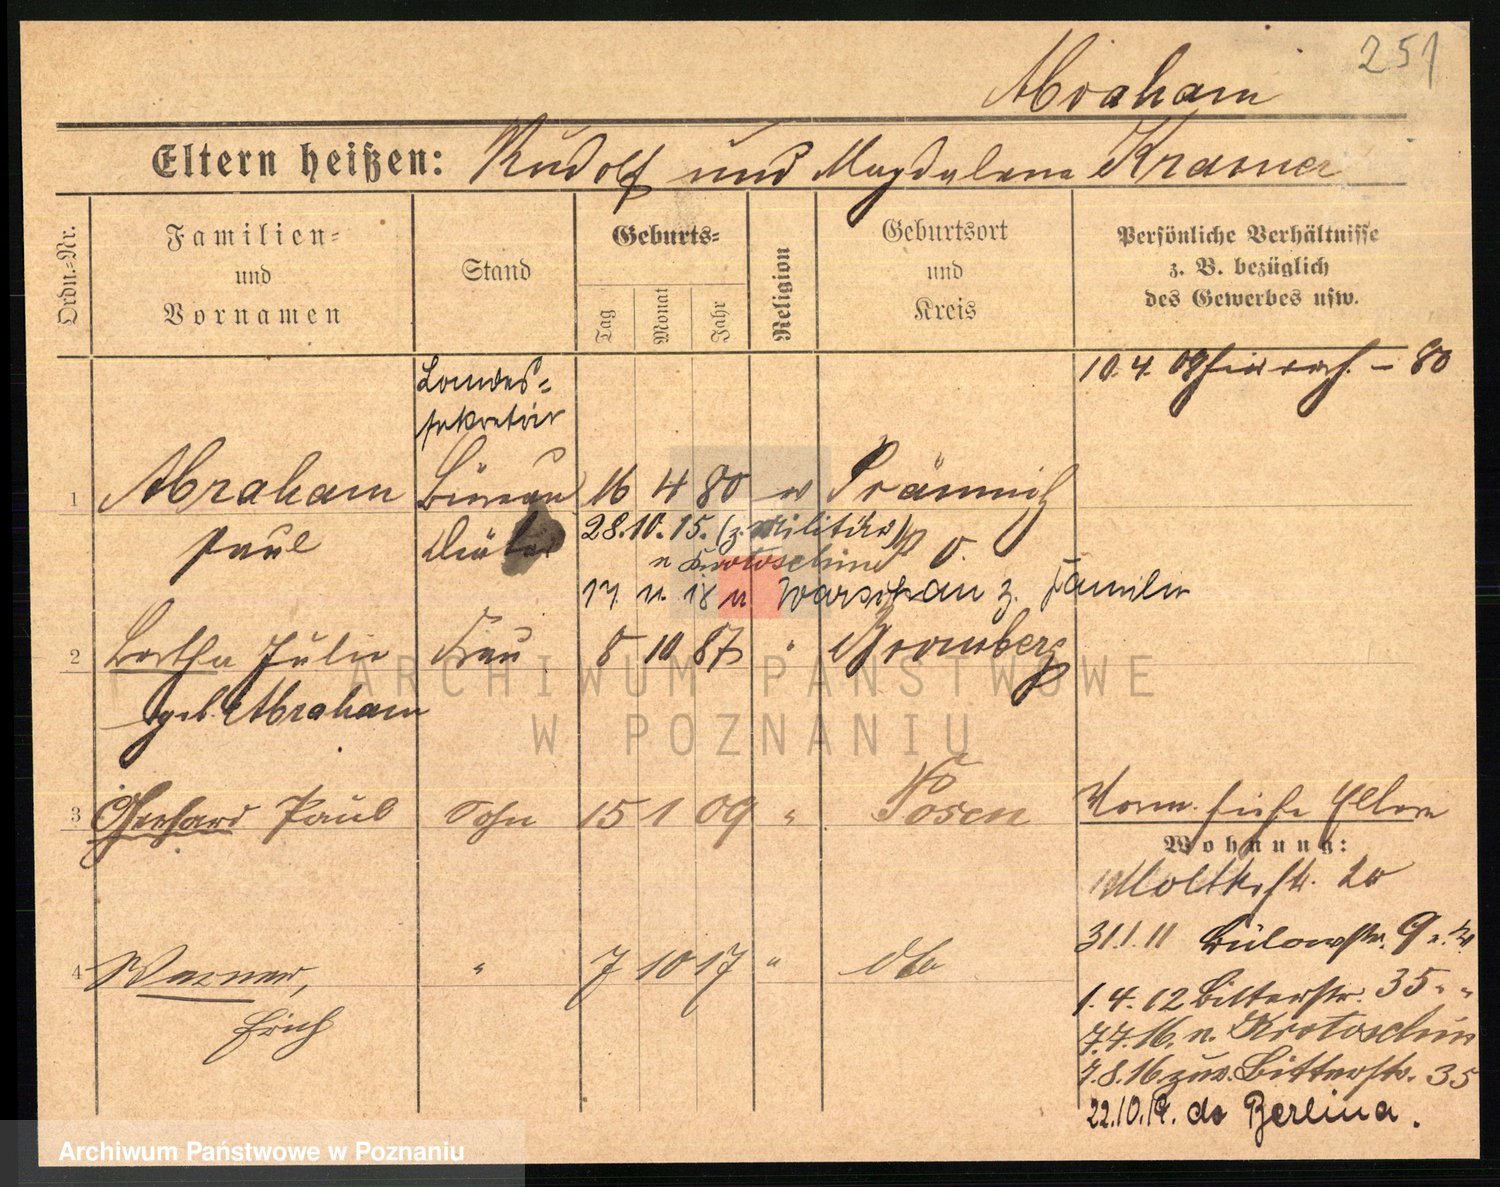 251
Abraham
Eltern heißen: Rudolf und Magdalena Kramer
Ordn.-Nr.
Familien- und Vornamen
Stand
Geburts-
Tag
Monat
Jahr
Religion
Geburtsort und Kreis
Persönliche Verhältnisse z. B. bezüglich des Gewerbes usw.
10.4.09 – 80
Landes-
sekretär
1 Abraham Büreau 16 4 80 ev
Paul Diätar 28.10.15. (z. Militär)
n Krotoschin
17. 11. 18 n Warschau z. Familie
2 Bertha Julie Frau 8 10 87 " Bromberg
geb. Abraham
3 Gerhard Paul Sohn 15 1 09 " Posen
Vorm. siehe Eltern
Wohnung:
Moltkestr. 20
31.1.11 Bülowstr. 9
4 Werner, " 7 10 17 " dto
Erich
1.4.12 Bitterstr. 35 " "
7.7.16. n. Krotoschin
7.8.16. zur. Bitterstr. 35
22.10.19. do Berlina.
ARCHIWUM PAŃSTWOWE
W POZNANIU
Archiwum Państwowe w Poznaniu